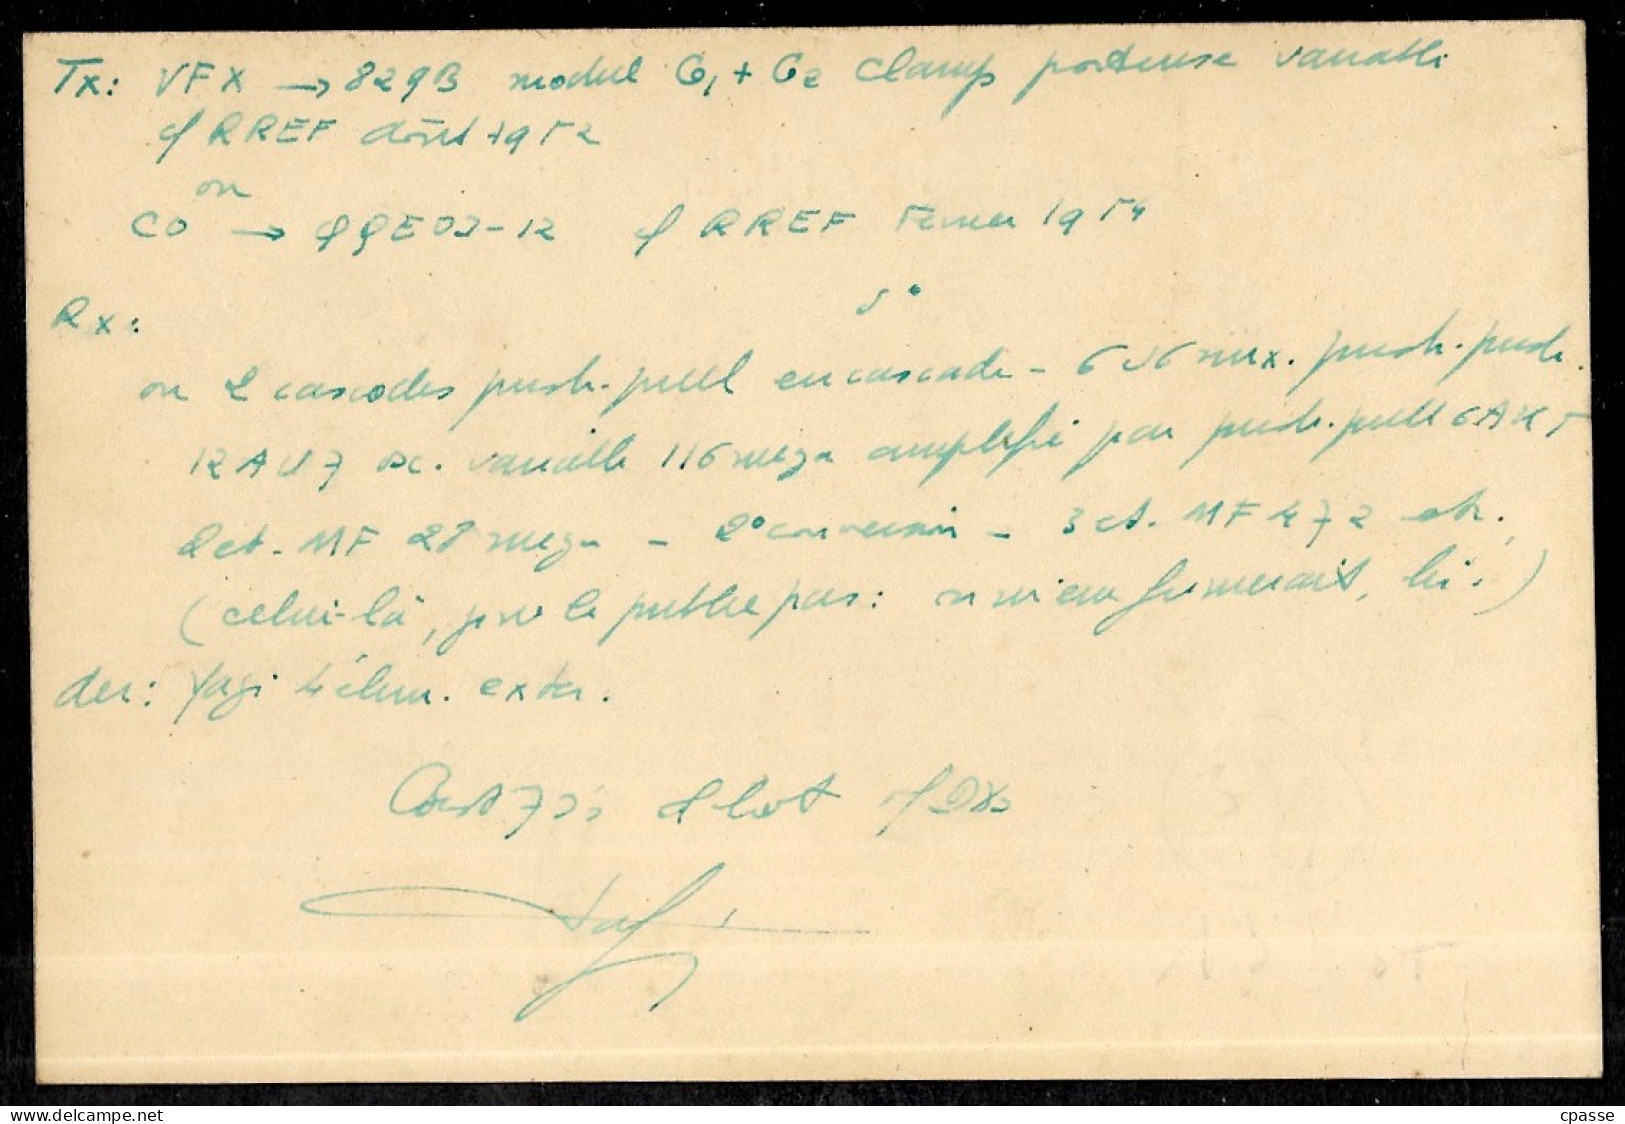 Tx: VFX → 829B modul G1 + G2 Clamp porteuse variable
cf RREF août 1952
ou
CO → QQE03-12 cf RREF Février 1954
Rx:
ou 2 cascodes push-pull en cascade - 6J6 mix. push-push.
12AU7 osc. variable 116 mega amplifié par push-pull 6AK5
2 et. MF 28 mega - 2° conversion - 3 et. MF 472 etc.
(celui-là, je ne le publie pas: , lui!)
der: Yagi 4 élem. exter.
73s
cpasse